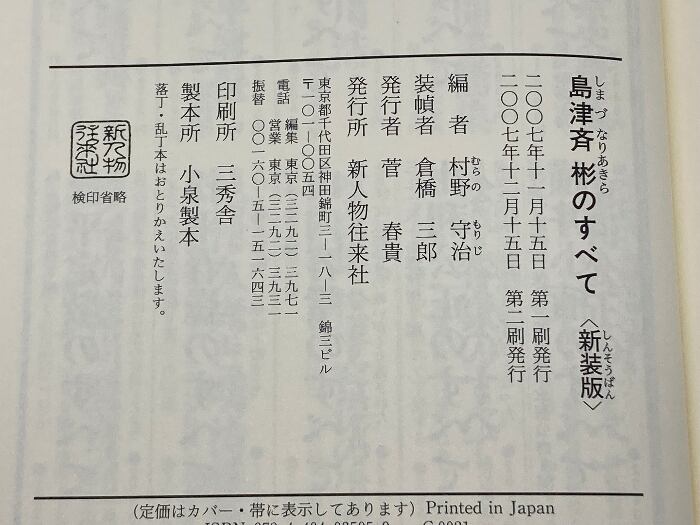 島津斉彬のすべて〈新装版〉
しまづなりあきら
しんそうばん
二〇〇七年十一月十五日 第一刷発行
二〇〇七年十二月十五日 第二刷発行
編者 村野守治
むらの もりじ
装幀者 倉橋三郎
発行者 菅春貴
発行所 新人物往来社
東京都千代田区神田錦町三―一八―三 錦三ビル
〒一〇一―〇〇五四
電話 編集 東京(三二九二)三九七一
営業 東京(三二九二)三九三一
振替 〇〇一六〇―五―一五一六四三
印刷所 三秀舎
製本所 小泉製本
落丁・乱丁本はおとりかえいたします。
新人物
往来社
検印省略
(定価はカバー・帯に表示してあります) Printed in Japan